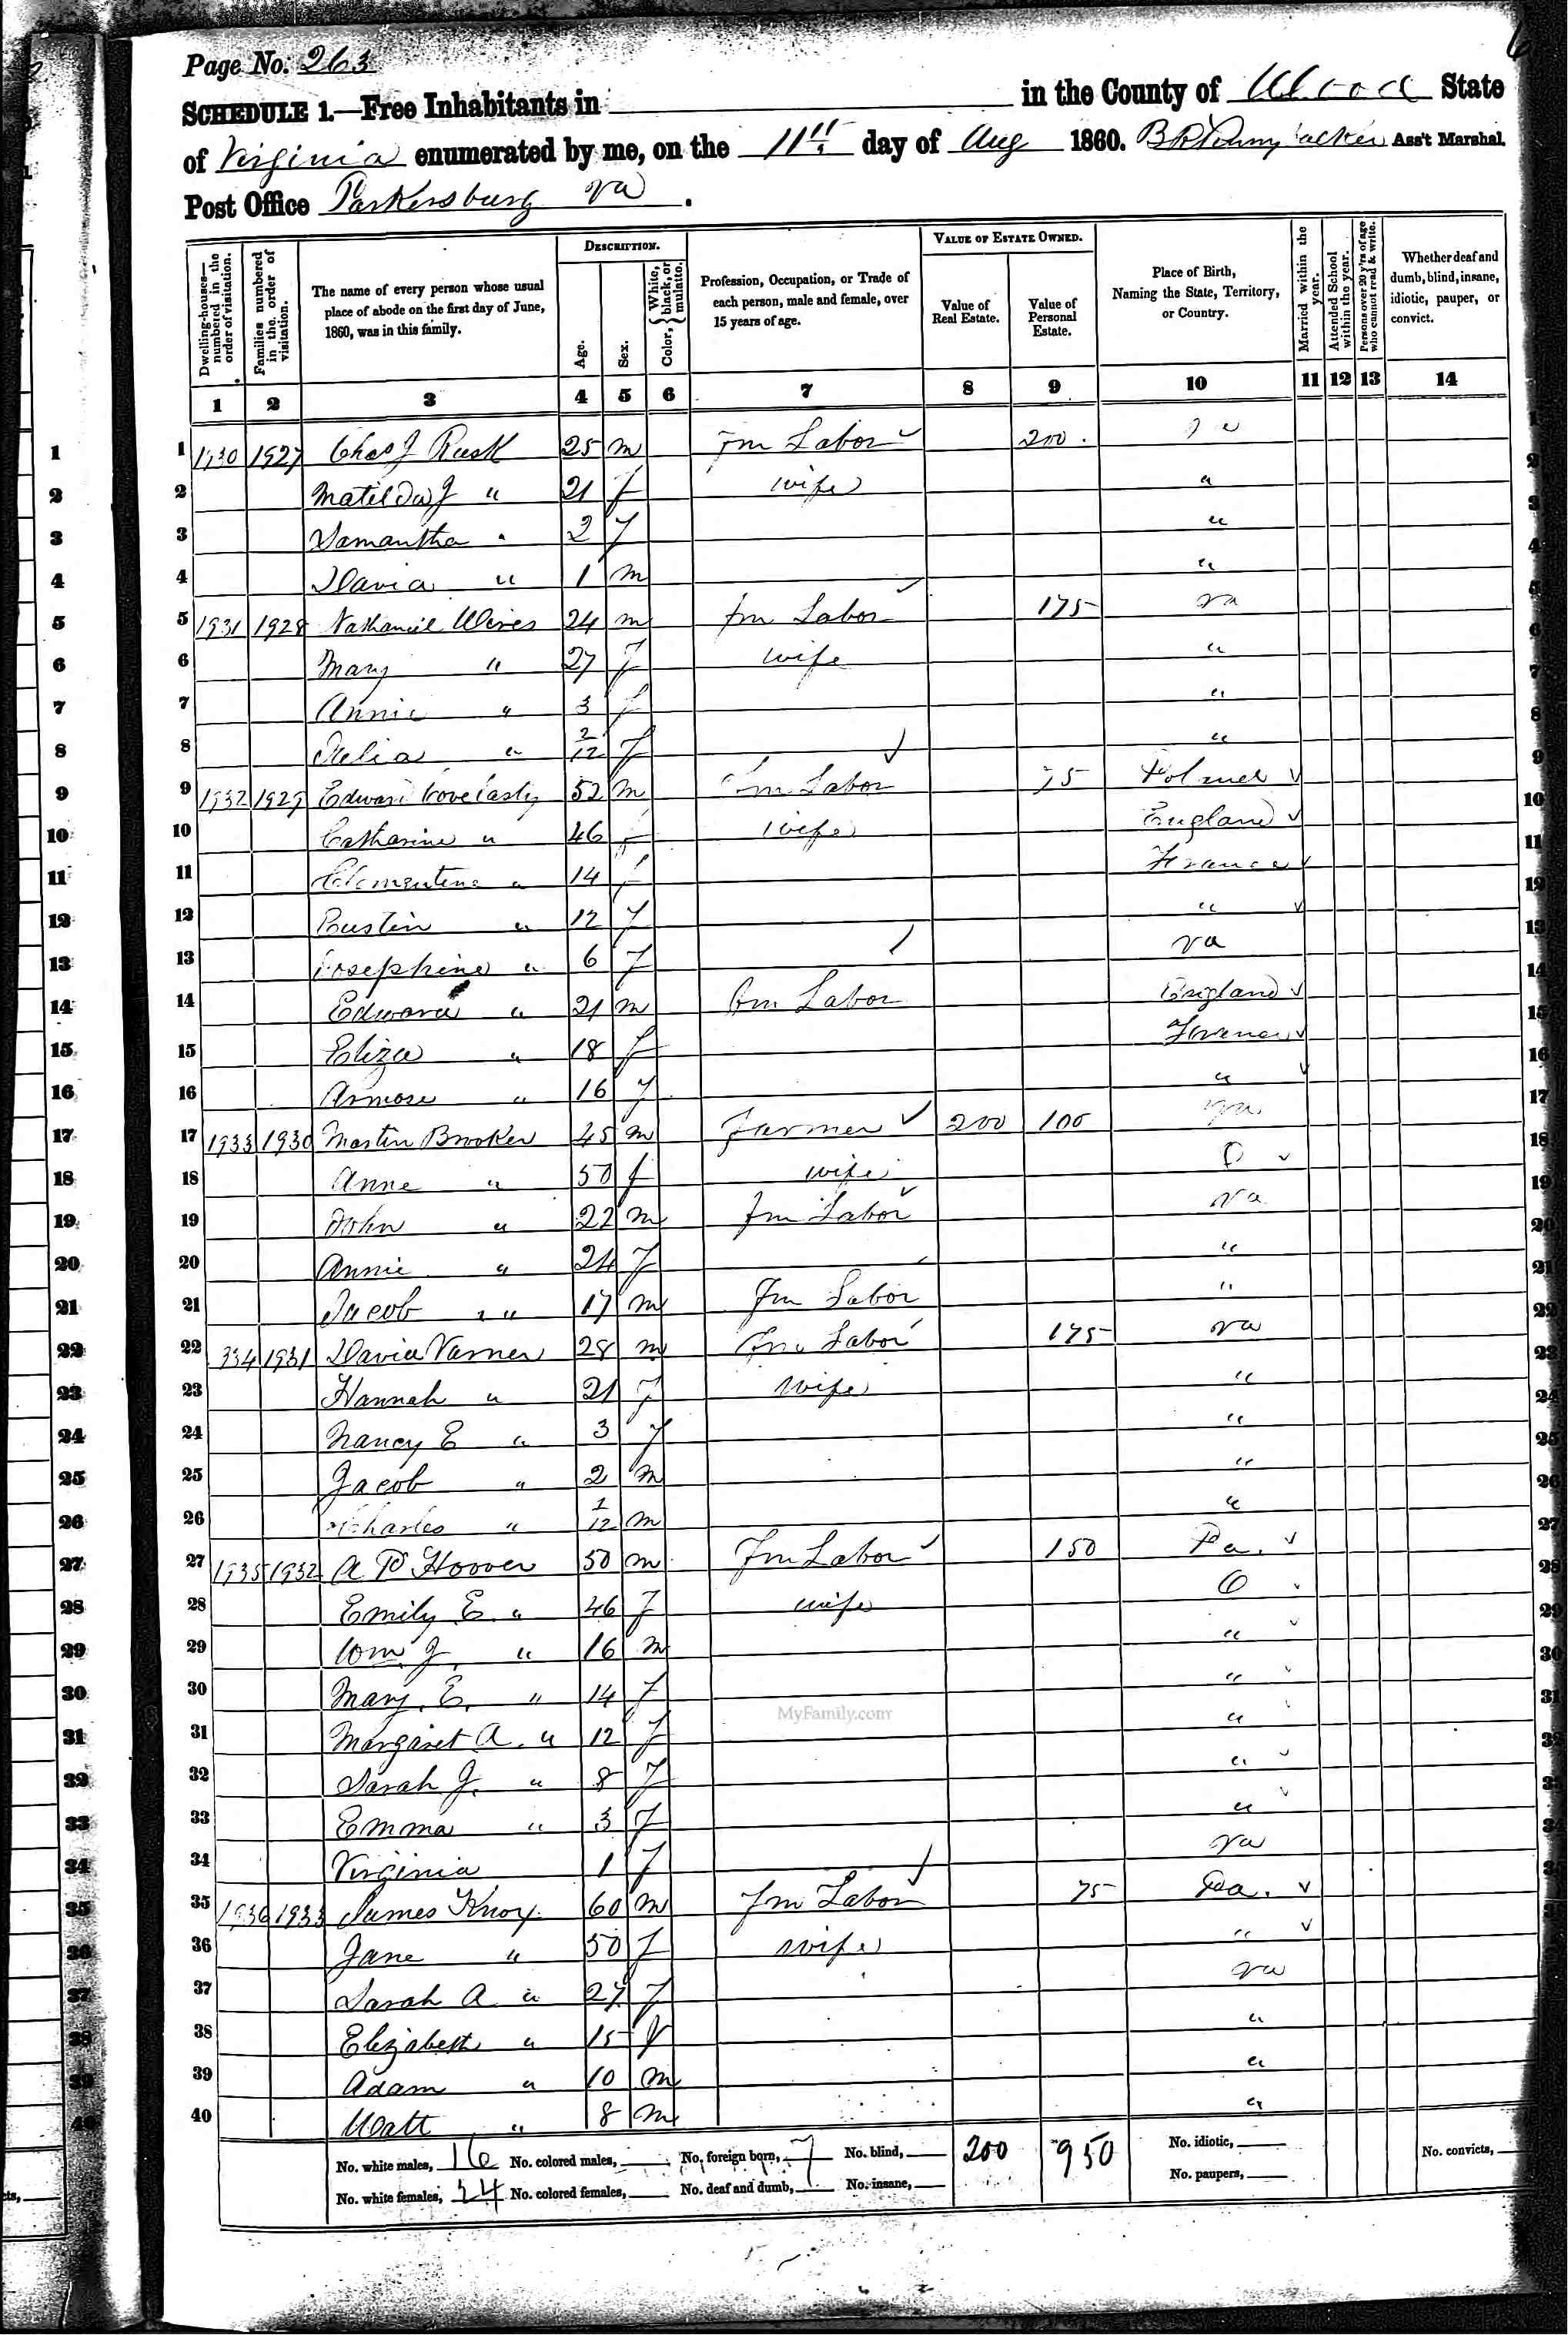 Page No. 263
SCHEDULE 1.—Free Inhabitants in in the County of Wood State
of Virginia enumerated by me, on the 11" day of Aug 1860. Ass't Marshal.
Post Office Parkersburg Va.
Dwelling-houses—numbered in the order of visitation.
Families numbered in the order of visitation.
The name of every person whose usual place of abode on the first day of June, 1860, was in this family.
DESCRIPTION.
Age.
Sex.
Color, { White, black, or mulatto.
Profession, Occupation, or Trade of each person, male and female, over 15 years of age.
VALUE OF ESTATE OWNED.
Value of Real Estate.
Value of Personal Estate.
Place of Birth, Naming the State, Territory, or Country.
Married within the year.
Attended School within the year.
Persons over 20 y'rs of age who cannot read & write.
Whether deaf and dumb, blind, insane, idiotic, pauper, or convict.
1 2 3 4 5 6 7 8 9 10 11 12 13 14
1 1930 1927 Chas J Rusk 25 m Fm Labor 200. Va
2 Matilda J " 21 f wife "
3 Samantha " 2 f "
4 David " 1 m "
5 1931 1928 Nathaniel 24 m fm Labor 175 va
6 Mary " 27 f wife "
7 Annie " 3 f "
8 " 2/12 f "
9 1932 1929 Edward 52 m fm Labor 75
10 Catharine " 46 f wife England
11 Clementine " 14 f France
12 " 12 f "
13 Josephine " 6 f va
14 Edward " 21 m Labor England
15 Eliza " 18 f France
16 " 16 f "
17 1933 1930 Martin Brooker 45 m Farmer 200 100 va
18 Anne " 50 f wife O
19 John " 22 m fm Labor va
20 Annie " 24 f "
21 Jacob " 17 m Fm Labor "
22 334 1931 David Varner 28 m Fm Labor 175 va
23 Hannah " 21 f wife "
24 Nancy E " 3 f "
25 Jacob " 2 m "
26 Charles " 1/12 m "
27 1935 1932 A P Hoover 50 m Fm Labor 150 Pa.
28 Emily E. " 46 f wife O
29 Wm J. " 16 m "
30 Mary. E. " 14 f "
31 Margaret A. " 12 f "
32 Sarah J. " 8 f "
33 Emma " 3 f "
34 Virginia 1 f va
35 1936 1933 James Knox. 60 m Fm Labor 75 Pa.
36 Jane " 50 f wife "
37 Sarah A " 27 f va
38 Elizabeth " 15 f "
39 Adam " 10 m "
40 Watt " 8 m "
No. white males, 16 No. colored males, No. foreign born, 7 No. blind, 200 950 No. idiotic, No. convicts,
No. white females, 24 No. colored females, No. deaf and dumb, No. insane, No. paupers,
MyFamily.com